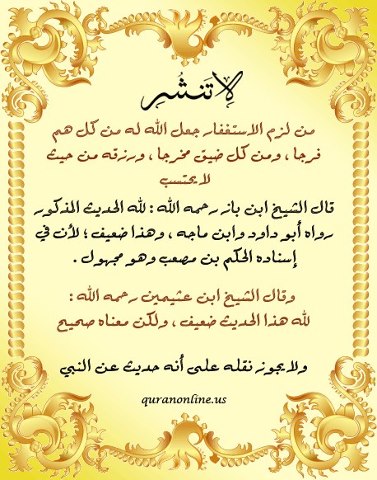 لا تَنشُر
من لزم الاستغفار جعل الله له من كل هم
فرجا ، ومن كل ضيق مخرجا ، ورزقه من حيث
لا يحتسب
قال الشيخ ابن باز رحمه الله : لله الحديث المذكور
رواه أبو داود وابن ماجه ، وهذا ضعيف ؛ لأن في
إسناده الحكم بن مصعب وهو مجهول .
وقال الشيخ ابن عثيمين رحمه الله :
لله هذا الحديث ضعيف ، ولكن معناه صحيح
ولا يجوز نقله على أنه حديث عن النبي
quranonline.us